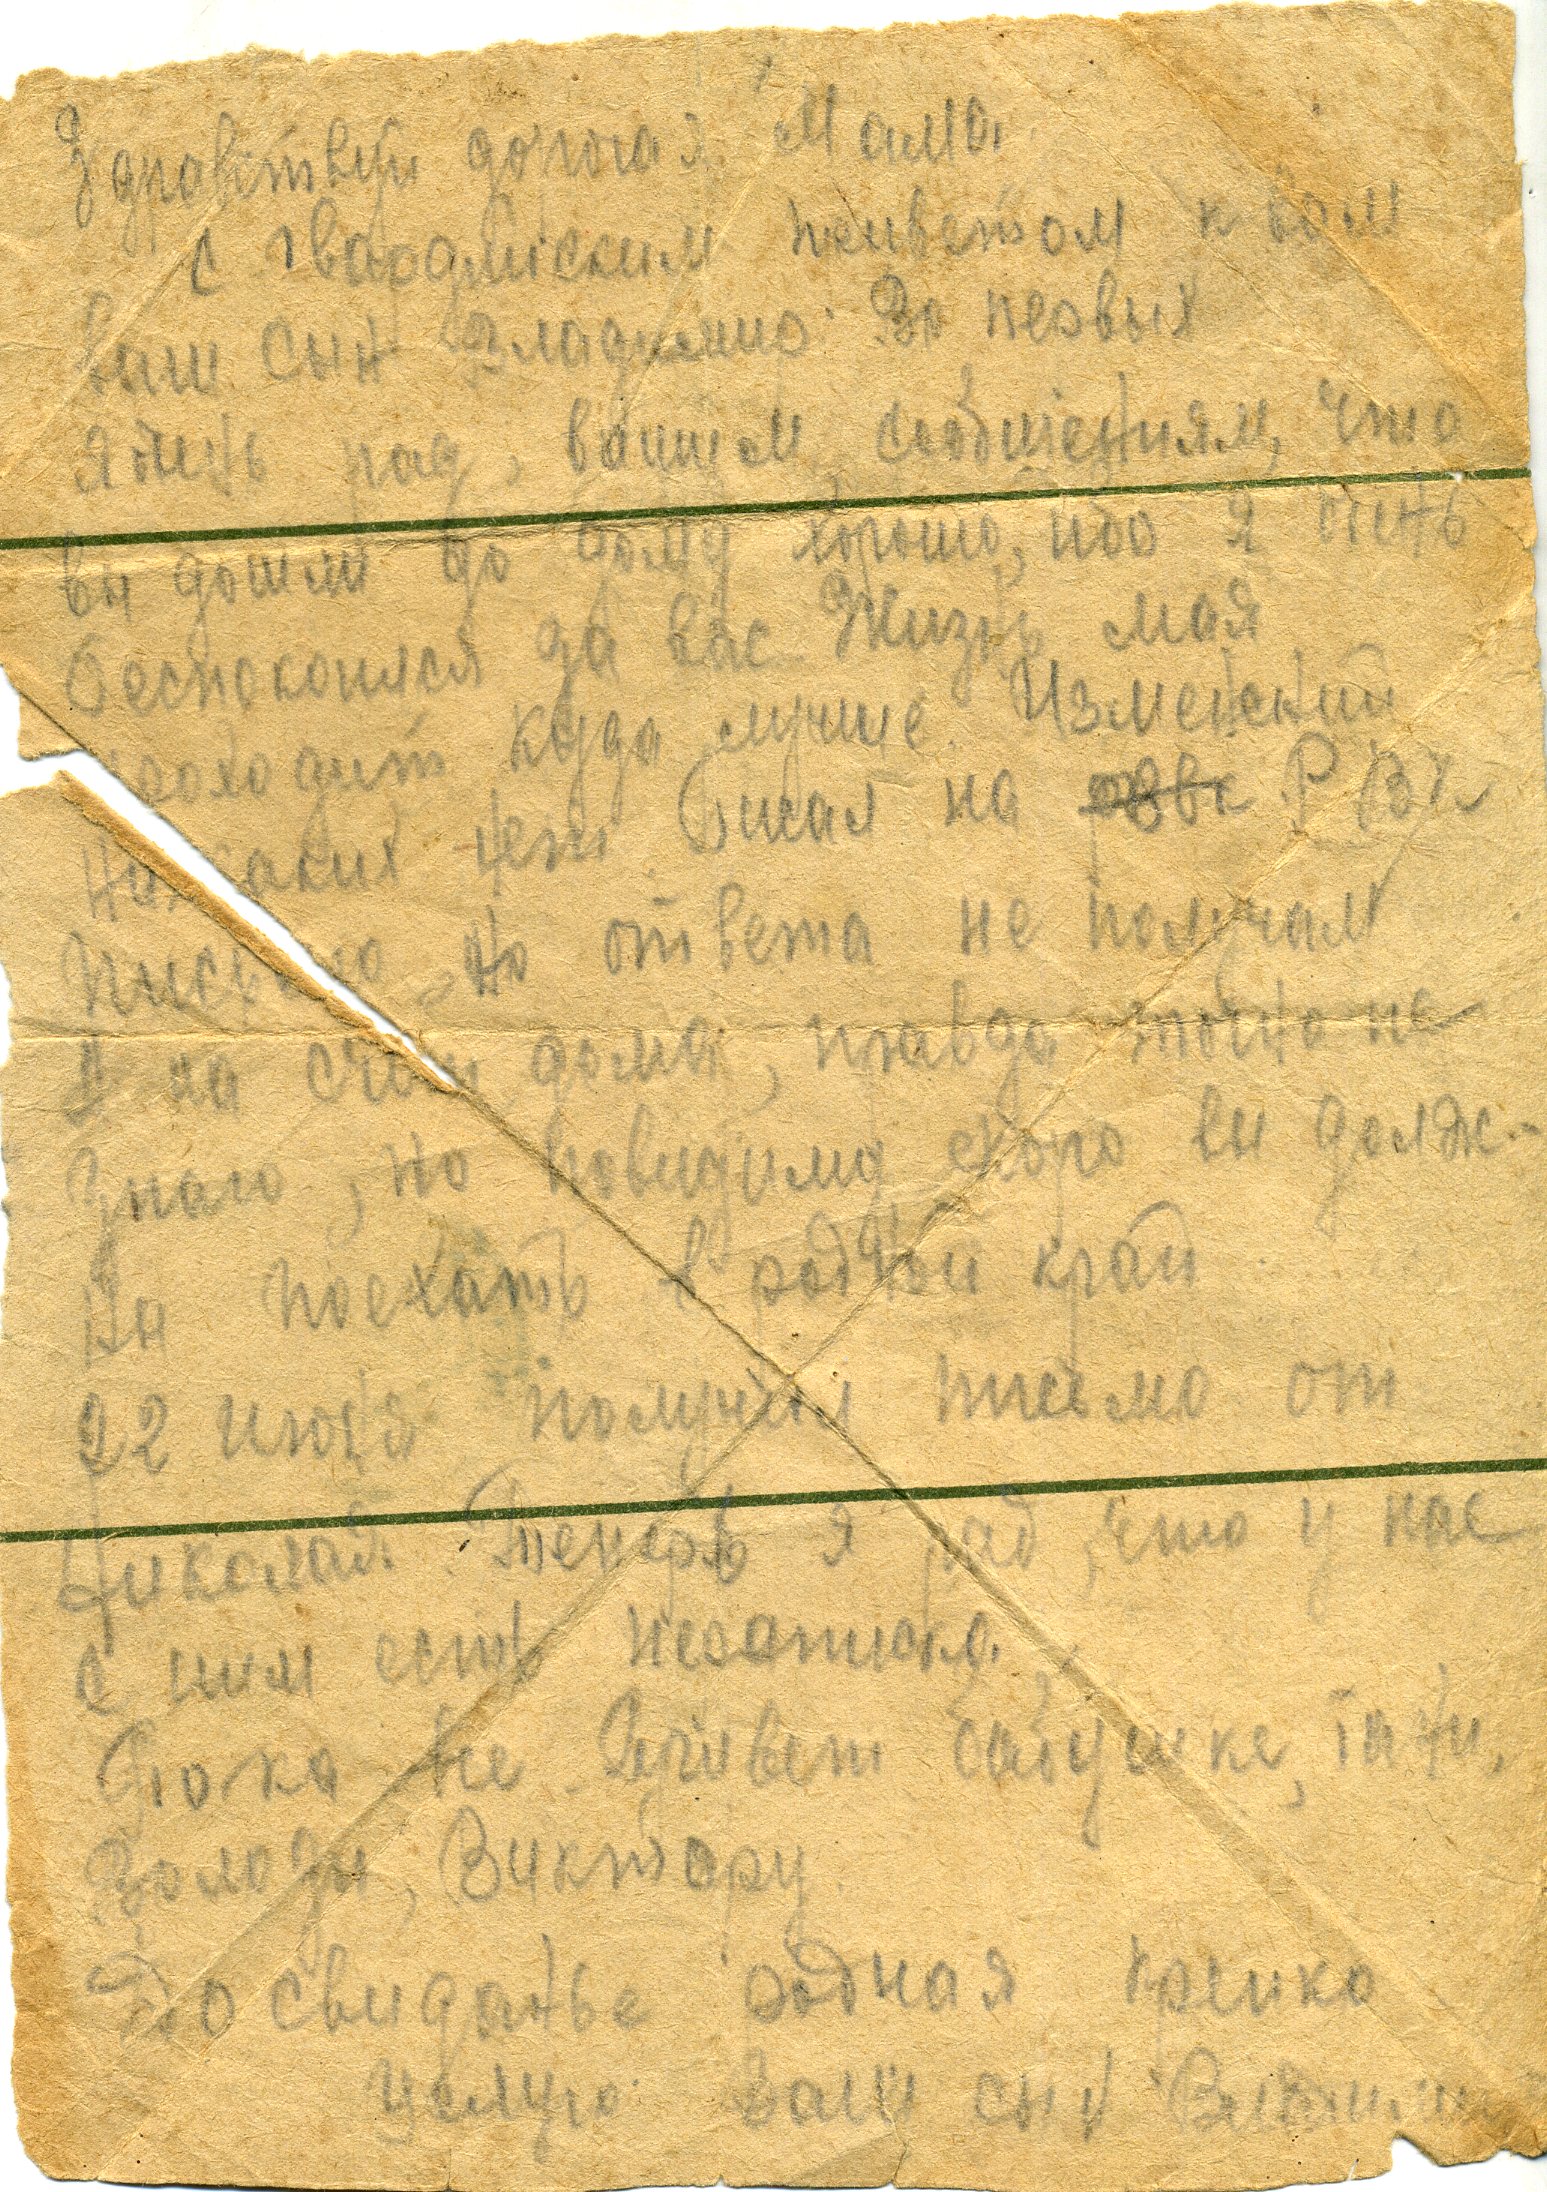 Здравствуй дорогая Мама.
С гвардейским приветом к вам
ваш сын Владимир. Во первых
я очень рад, вашим сообщениям, что
вы дошли до дому хорошо, ибо я очень
беспокоился за вас. Жизнь моя
проходит куда лучше. Изменений
ни каких нет. Писал на РВК
письмо, но ответа не получал
А на счет дома, правда точно не
знаю, но повидимо скоро вы долж-
ны поехать в родной край.
22 июня получил письмо от
Николая. Теперь я рад, что у нас
с ним есть
Пока все. Привет бабушке, Гали,
Володи, Виктору.
До свиданье родная крепко
целую. Ваш сын Владимир